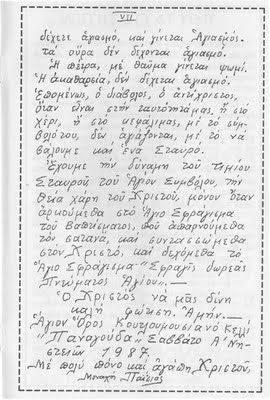 VII
δέχεται ἁγιασμό, καί γίνεται Ἁγιασμός.
τά οὖρα δέν δέχονται ἁγιασμό.
Ἡ πέτρα, μέ θαῦμα γίνεται ψωμί.
Ἡ ἀκαθαρσία, δέν δέχεται ἁγιασμό.
Ἑπομένως, ὁ διάβολος, ὁ ἀντίχριστος,
ὅταν εἶναι στήν ταυτότητά μας, ἤ στό
χέρι, ἤ στό κεφάλι μας, μέ τό σύμ-
βολό του, δέν ἁγιάζονται, μέ τό νά
βάζουμε καί ἕνα Σταυρό.
Ἔχουμε τήν δύναμη τοῦ Τιμίου
Σταυροῦ τοῦ Ἁγίου Συμβόλου, τήν
θεία χάρη τοῦ Χριστοῦ, μόνον ὅταν
ἀρκούμεθα στό Ἅγιο Σφράγισμα
τοῦ Βαπτίσματος, πού ἀπαρνούμεθα
τόν σατανᾶ, καί συντασσώμεθα
στόν Χριστό, καί δεχόμεθα τό
Ἅγιο Σφράγισμα "Σφραγίς δωρεᾶς
Πνεύματος Ἁγίου".—
Ὁ Χριστός νά μᾶς δίνη
καλή φώτιση. Ἀμήν.—
Ἅγιον Ὄρος Κουτλουμουσιανό Κελλί
"Παναγούδα" Σάββατο Α´ Νη-
στειῶν 1987.
Μέ πολύ πόνο καί ἀγάπη Χριστοῦ,
Μοναχός Παΐσιος